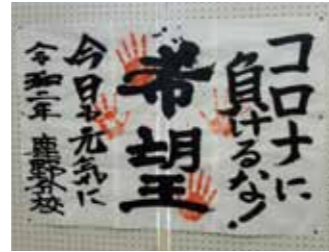 コロナに
負けるな!
希望
今日も元気に
令和二年 鹿野分校